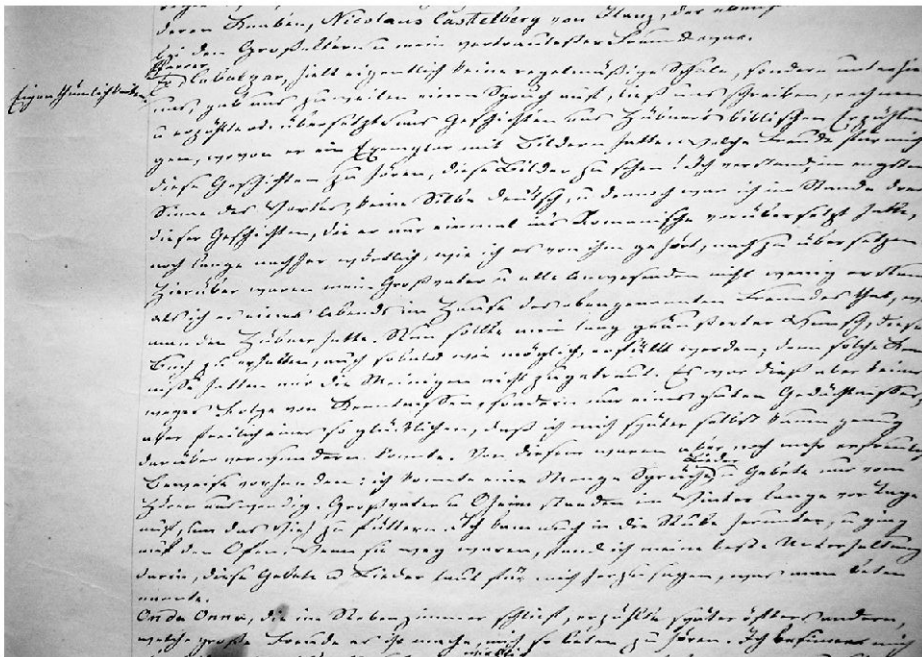 deren Knaben, Nicolaus Castelberg von Ilanz, der eben
bei den Großeltern u mein vertrautester Freund war.
Pfarrer
hielt eigentlich keine regelmäßige Schule, sondern unterhielt
Eigenthümlichkeiten
uns, gab uns zuweilen einen Spruch auf, ließ uns schreiben, rechnen
u erzählte od. übersetzte uns Geschichten aus Hübners biblischen Erzählun
gen, wovon er ein Exemplar mit Bildern hatte. Welche Freude für mich
diese Geschichten zu hören, diese Bilder zu sehen! Ich verstand, im engsten
Sinne des Wortes, keine Silbe deutsch, u dennoch war ich im Stande
dieser Geschichten, die er nur einmal ins Romanische vorübersetzt hatte,
noch lange nachher wörtlich, wie ich es von ihm gehört, nachzuübersetzen
Hierüber waren mein Großvater u alle Anwesenden nicht wenig erstaunt
als ich es eines Abends im Hause des obengenannten Freundes that, wo
man den Hübner hatte. Nun sollte mein lang geäußerter Wunsch, dieses
Buch zu erhalten, auch sobald wie möglich, erfüllt werden; denn solche Kennt
nisse hatten mir die Meinigen nicht zugetraut. Es war dieß aber keines
weges Folge von Kenntnissen, sondern nur eines guten Gedächtnisses
aber freilich eines so glücklichen, daß ich mich später selbst kaum genug
darüber verwundern konnte. Von diesem waren aber noch mehr erfreuliche
Beweise vorhanden: ich konnte eine Menge Sprüche, Lieder u Gebete nur vom
Hören auswendig. Großvater u Oheim standen im Winter lange vor Tage
auf, um das Vieh zu füttern. Ich kam auch in die Stube herunter, u ging
auf den Ofen. Wenn sie weg waren, fand ich meine beste Unterhaltung
darin, diese Gebete u Lieder laut für mich herzusagen, was man beten
nannte.
Onda Onna, die im Nebenzimmer schlief, erzählte später öfters andern,
welche große Freude es ihr mache, mich so beten zu hören. Ich